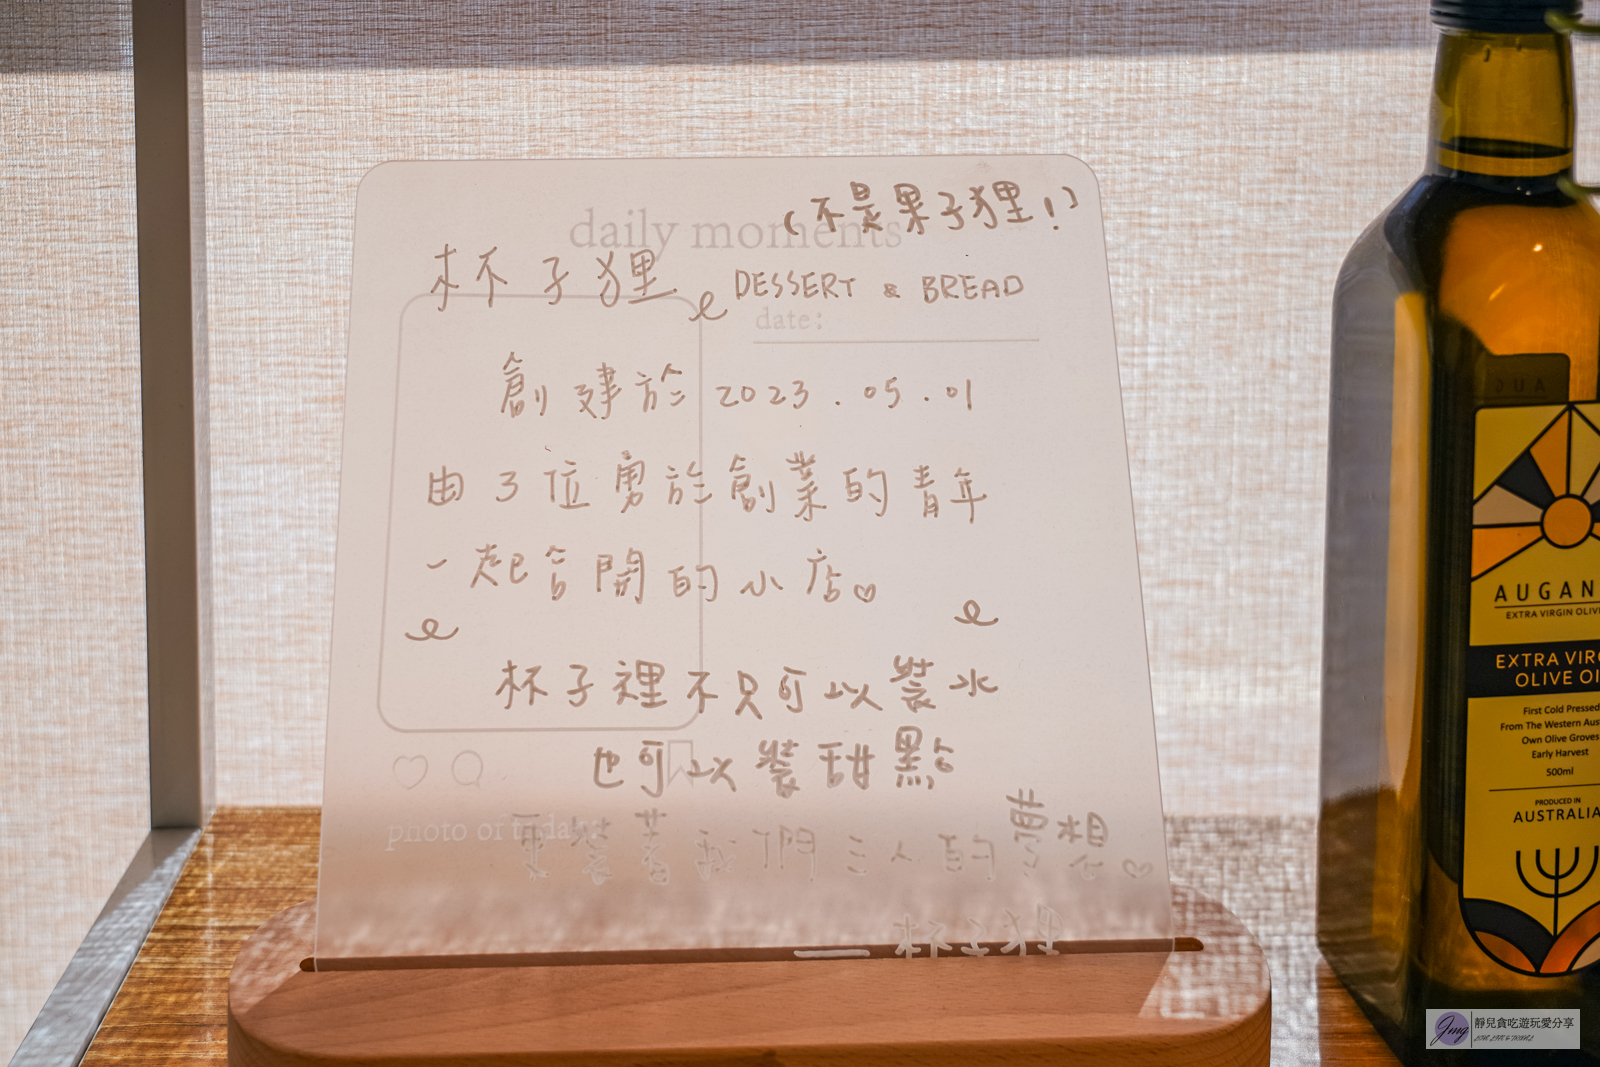 (不是果子狸!)
daily moments
杯子狸 DESSERT & BREAD
date:
創建於 2023.05.01
由3位勇於創業的青年
一起合開的小店♡
杯子裡不只可以裝水
也可以裝甜點
photo of today:
更裝著我們三人的夢想♡
— 杯子狸
AUGAN
EXTRA VIRGIN OLIV
EXTRA VIR
OLIVE OI
First Cold Pressed
From The Western Aus
Own Olive Groves
Early Harvest
500ml
PRODUCED IN
AUSTRALIA
Jmg
靜兒貪吃遊玩愛分享